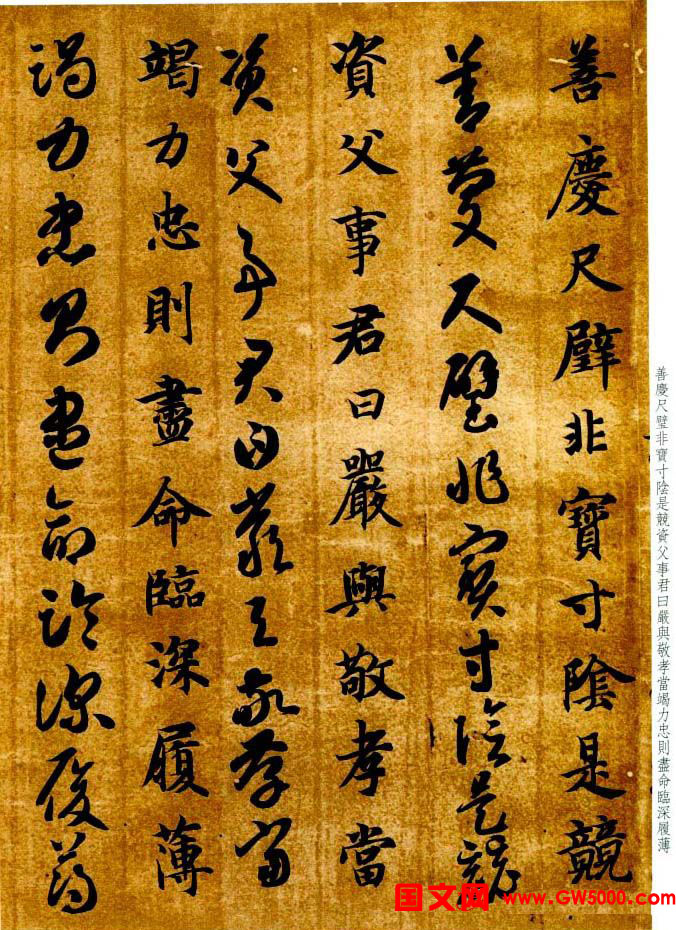 善慶尺璧非寶寸陰是競
善慶尺璧非寶寸陰是競
資父事君曰嚴與敬孝當
資父事君曰嚴與敬孝當
竭力忠則盡命臨深履薄
竭力忠則盡命臨深履薄
善慶尺璧非寶寸陰是競資父事君曰嚴與敬孝當竭力忠則盡命臨深履薄
国文网 www.GW5000.com